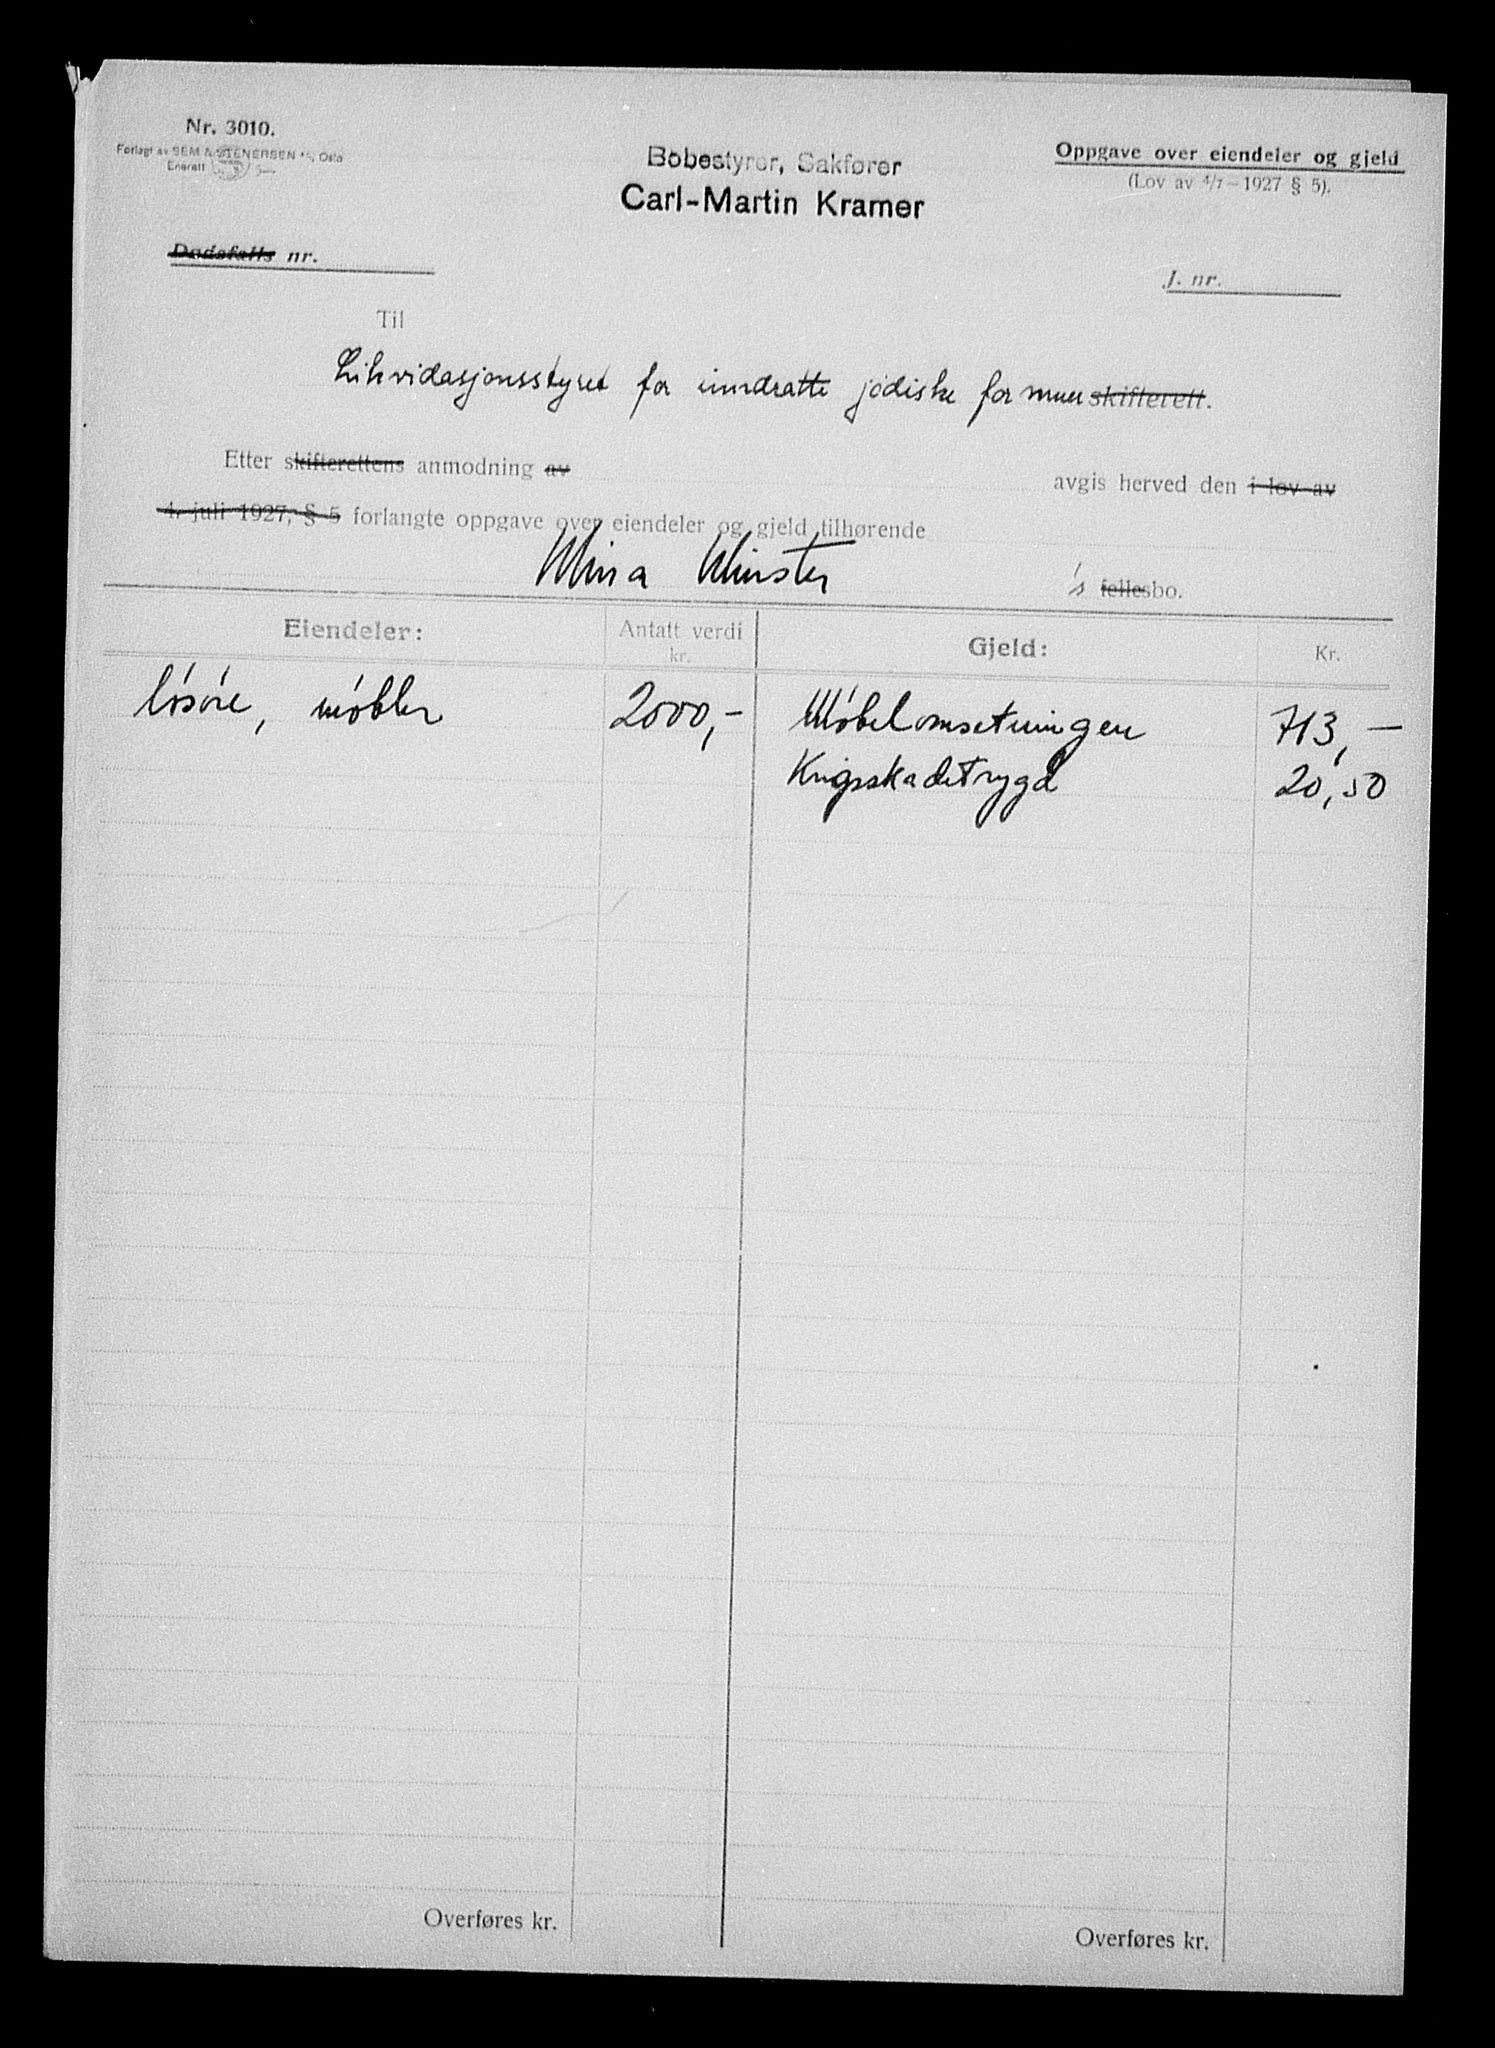 Nr. 3010.
Forlagt av SEM & STENERSEN A/S, Oslo
Enerett
Bobestyrer, Sakfører
Carl-Martin Kramer
Oppgave over eiendeler og gjeld
(Lov av 4/7 - 1927 § 5).
Dødsfalls nr.
J. nr.
Til
Likvidasjonsstyret for inndratte jødiske formuer skifterett.
Etter skifterettens anmodning av
avgis herved den i lov av
4. juli 1927, § 5 forlangte oppgave over eiendeler og gjeld tilhørende
Mina Minster 's fellesbo.
Eiendeler: Antatt verdi kr. Gjeld: Kr.
løsøre, møbler 2000,- Møbelomsetningen 713,-
Krigsskadetrygd 20,50
Overføres kr. Overføres kr.